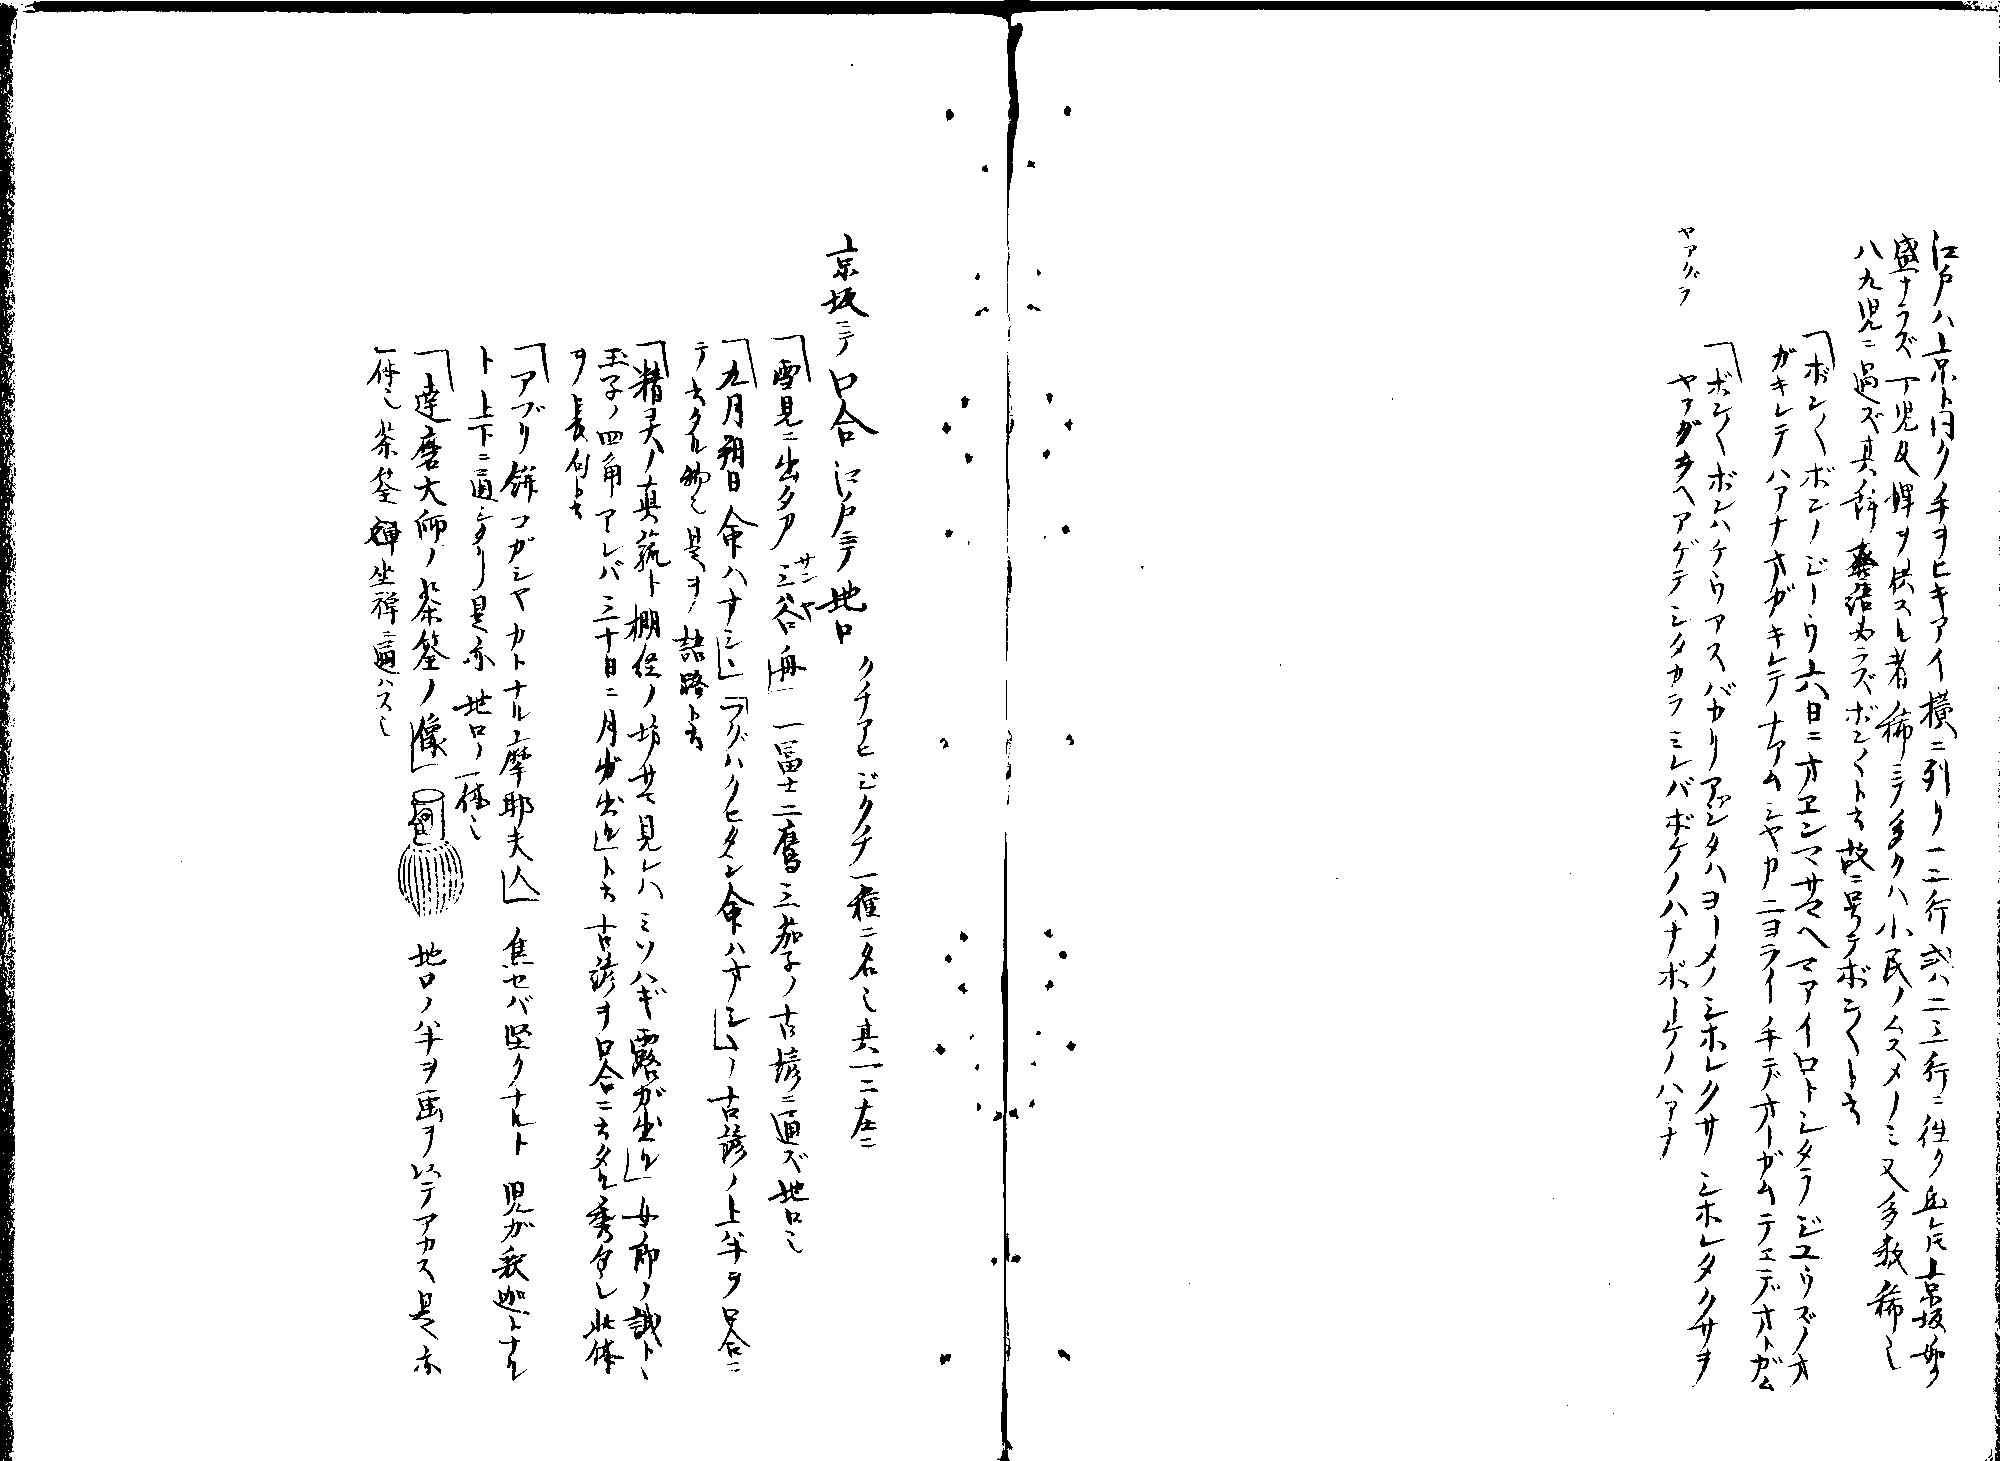 江戸ハ京ト同ク手ヲヒキアイ横ニ列リ一二行或ハ二三行ニ往ク然レ𪜈京坂如ク
盛ナラズ下児及婢ヲ供スル者稀ニテ多クハ小民ノムスメノミ又多数稀也
八九児ニ過ズ其
ボン〱ト云故ニ号テボン〱ト云
「ボン〱ボンノジーウ六日ニオエンマサマヘマアイロトシタラジユウズノオ
ガキレテハアナオガキレテナアムシヤカニヨライ手デオーガムテエデオトガム
「ボン〱ボンハケウアスバカリアシタハヨーメノシホレクサシホレタクサヲ
ヤアグラ
ヤアグラヘアゲテシタカラミレバボケノハナボーケノハアナ
京坂ニテ口合江戸ニテ地口 クチアヒジクチ一種ニ名也其一二左ニ
「雪見ニ出タア三谷舟」 一冨士二鷹三茄子ノ古諺ニ通ズ地口也
サンヤ
「九月朔日命ハナシ」「フグハクヒタシ命ハナシ」ノ古諺ノ上半ヲ口合ニ
テ云タル物也是ヲ語路ト云
「精霊ノ真菰ト棚経ノ坊サマ見レハミソハギ露ガ出ル」女郎ノ誠ト
玉子ノ四角アレバ三十日ニ月ガ出ルト云古諺ヲ口合ニ云タル秀句也此体
ヲ長句ト云
「アブリ餅コガシヤカトナル摩耶夫人」 焦セバ堅クナルト 児ガ釈迦トナル
ト上下ニ通シタリ是亦地口ノ一体也
「達磨大師ノ茶筌ノ像」 地口ノ半ヲ画ヲ以テアカス是亦
一体也茶筌坐禅ニ通ハス也